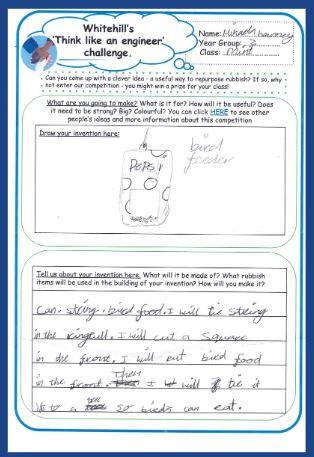 Whitehill's
'Think like an engineer'
challenge.
Name: Mikaela
Year Group: 3
Class:
Can you come up with a clever idea - a useful way to repurpose rubbish: If so, why
not enter our competition - you might win a prize for your class!
What are you going to make? What is it for? How will it be useful? Does
it need to be strong? Big? Colourful? You can click HERE to see other
people's ideas and more information about this competition
Draw your invention here:
bird
feeder
POPS!
Tell us about your invention here. What will it be made of? What rubbish
items will be used in the building of your invention? How will you make it?
Can, string, bird food. I will tie string
in the ringpull. I will cut a square
in the front. I will put bird food
in the front. Then I will tie it
to a tree so birds can eat.